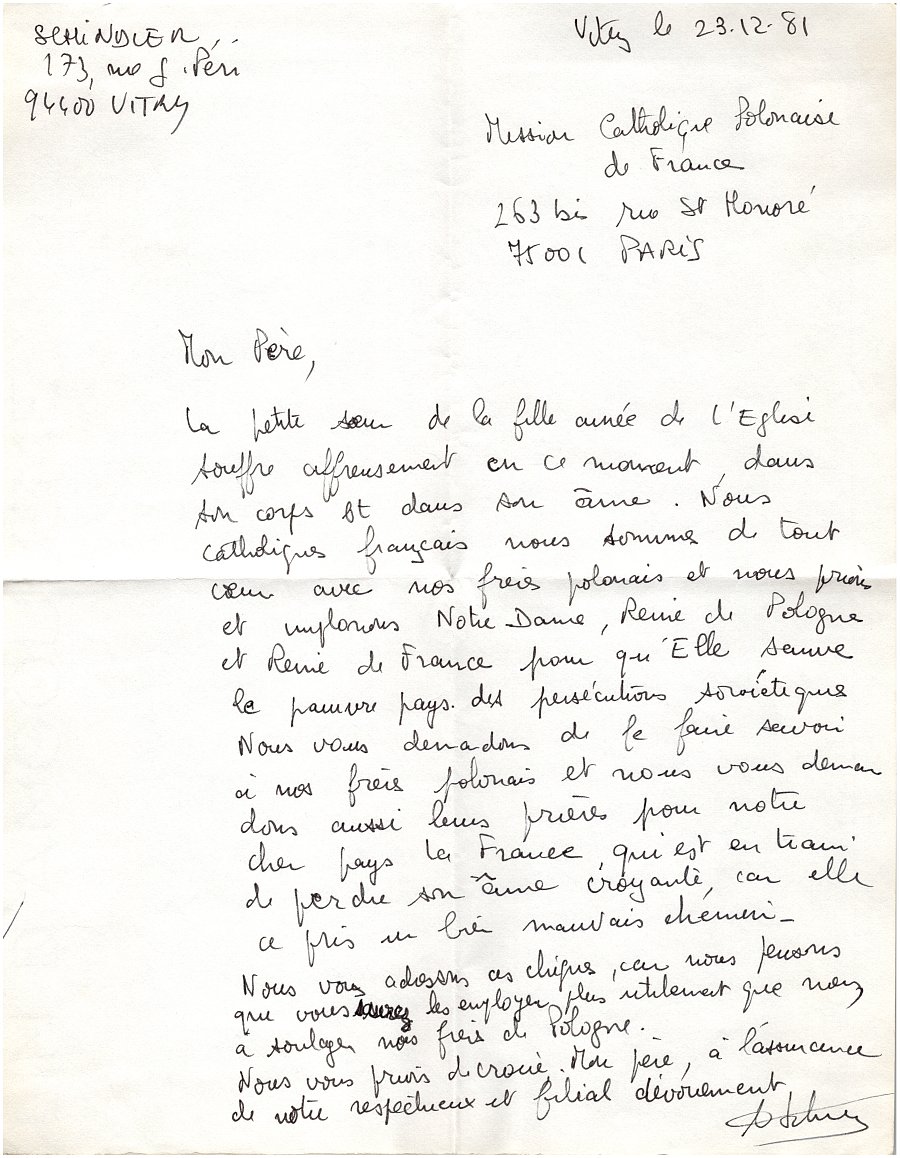 SCHINDLER
173, rue G. Péri
94400 VITRY
Vitry le 23.12.81
Mission Catholique Polonaise
de France
263 bis rue St Honoré
75001 PARIS
Mon Père,
La petite sœur de la fille ainée de l'Eglise
souffre affreusement en ce moment, dans
son corps et dans son âme. Nous
catholiques français nous sommes de tout
cœur avec nos frères polonais et nous prions
et implorons Notre-Dame, Reine de Pologne
et Reine de France pour qu'Elle sauve
le pauvre pays des persécutions soviétiques
Nous vous demandons de le faire savoir
à nos frères polonais et nous vous deman
dons aussi leurs prières pour notre
cher pays la France, qui est en train
de perdre son âme croyante, car elle
a pris un bien mauvais chemin_
Nous vous adressons ces chèques, car nous pensons
que vous saurez les employer plus utilement que nous
à soulager nos frères de Pologne.
Nous vous prions de croire, Mon père, à l'assurance
de notre respectueux et filial dévouement